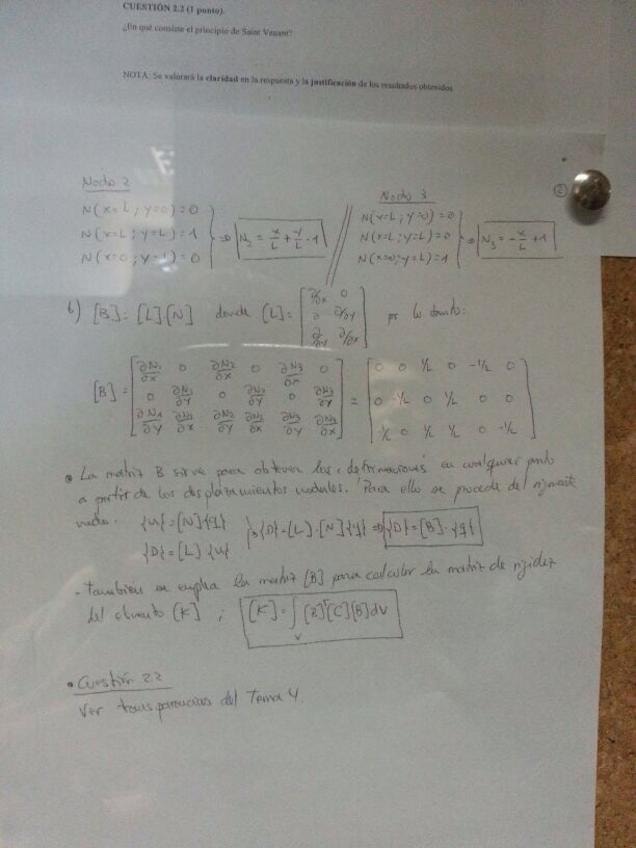 CUESTIÓN 2.2 (1 punto).
¿En qué consiste el principio de Saint Venant?
NOTA: Se valorará la claridad en la respuesta y la justificación de los resultados obtenidos
Nodo 2
N(x=L; y=0)=0
N(x=L; y=L)=1 ⇒ N₂ = x/L + y/L - 1
N(x=0; y=L)=0
Nodo 3
②
N(x=L; y=0)=0
N(x=L; y=L)=0 ⇒ N₃ = -x/L + 1
N(x=0; y=L)=1
b) [B]=[L]·[N] donde [L]= [∂/∂x 0
∂ ∂/∂y
∂/∂y ∂/∂x] por lo tanto:
[B] = [∂N₁/∂x 0 ∂N₂/∂x 0 ∂N₃/∂x 0
0 ∂N₁/∂y 0 ∂N₂/∂y 0 ∂N₃/∂y
∂N₁/∂y ∂N₁/∂x ∂N₂/∂y ∂N₂/∂x ∂N₃/∂y ∂N₃/∂x]
= [0 0 1/L 0 -1/L 0
0 -1/L 0 1/L 0 0
-1/L 0 1/L 1/L 0 -1/L]
• La matriz B sirve para obtener las "deformaciones" en cualquier punto
a partir de los desplazamientos nodales. Para ello se procede del siguiente
modo. {u}=[N]{q}
{D}=[L]·{u}
{D}=[L]·[N]{q} ⇒ {D}=[B]·{q}
- También se emplea la matriz [B] para calcular la matriz de rigidez
del elemento [K] ; [K]=∫ᵥ[B]ᵀ[C][B]dV
• Cuestión 2.2
Ver transparencias del Tema 4.